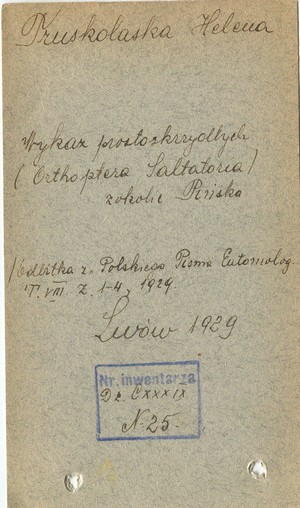 Truskolaska Helena
Wykaz prostoskrzydłych
(Orthoptera Saltatoria)
z okolic Pińska
/Odbitka z Polskiego Pisma Entomolog.
T. VIII. Z. 1-4, 1929.
Lwów 1929
Nr. inwentarza
Dz. CXXXIX
N. 25.